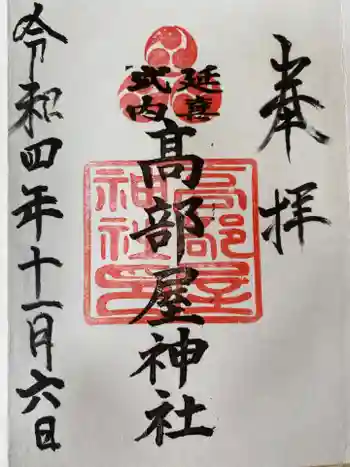 奉拝
延喜
式内
高部屋神社
高部屋
神社印
令和四年十一月六日